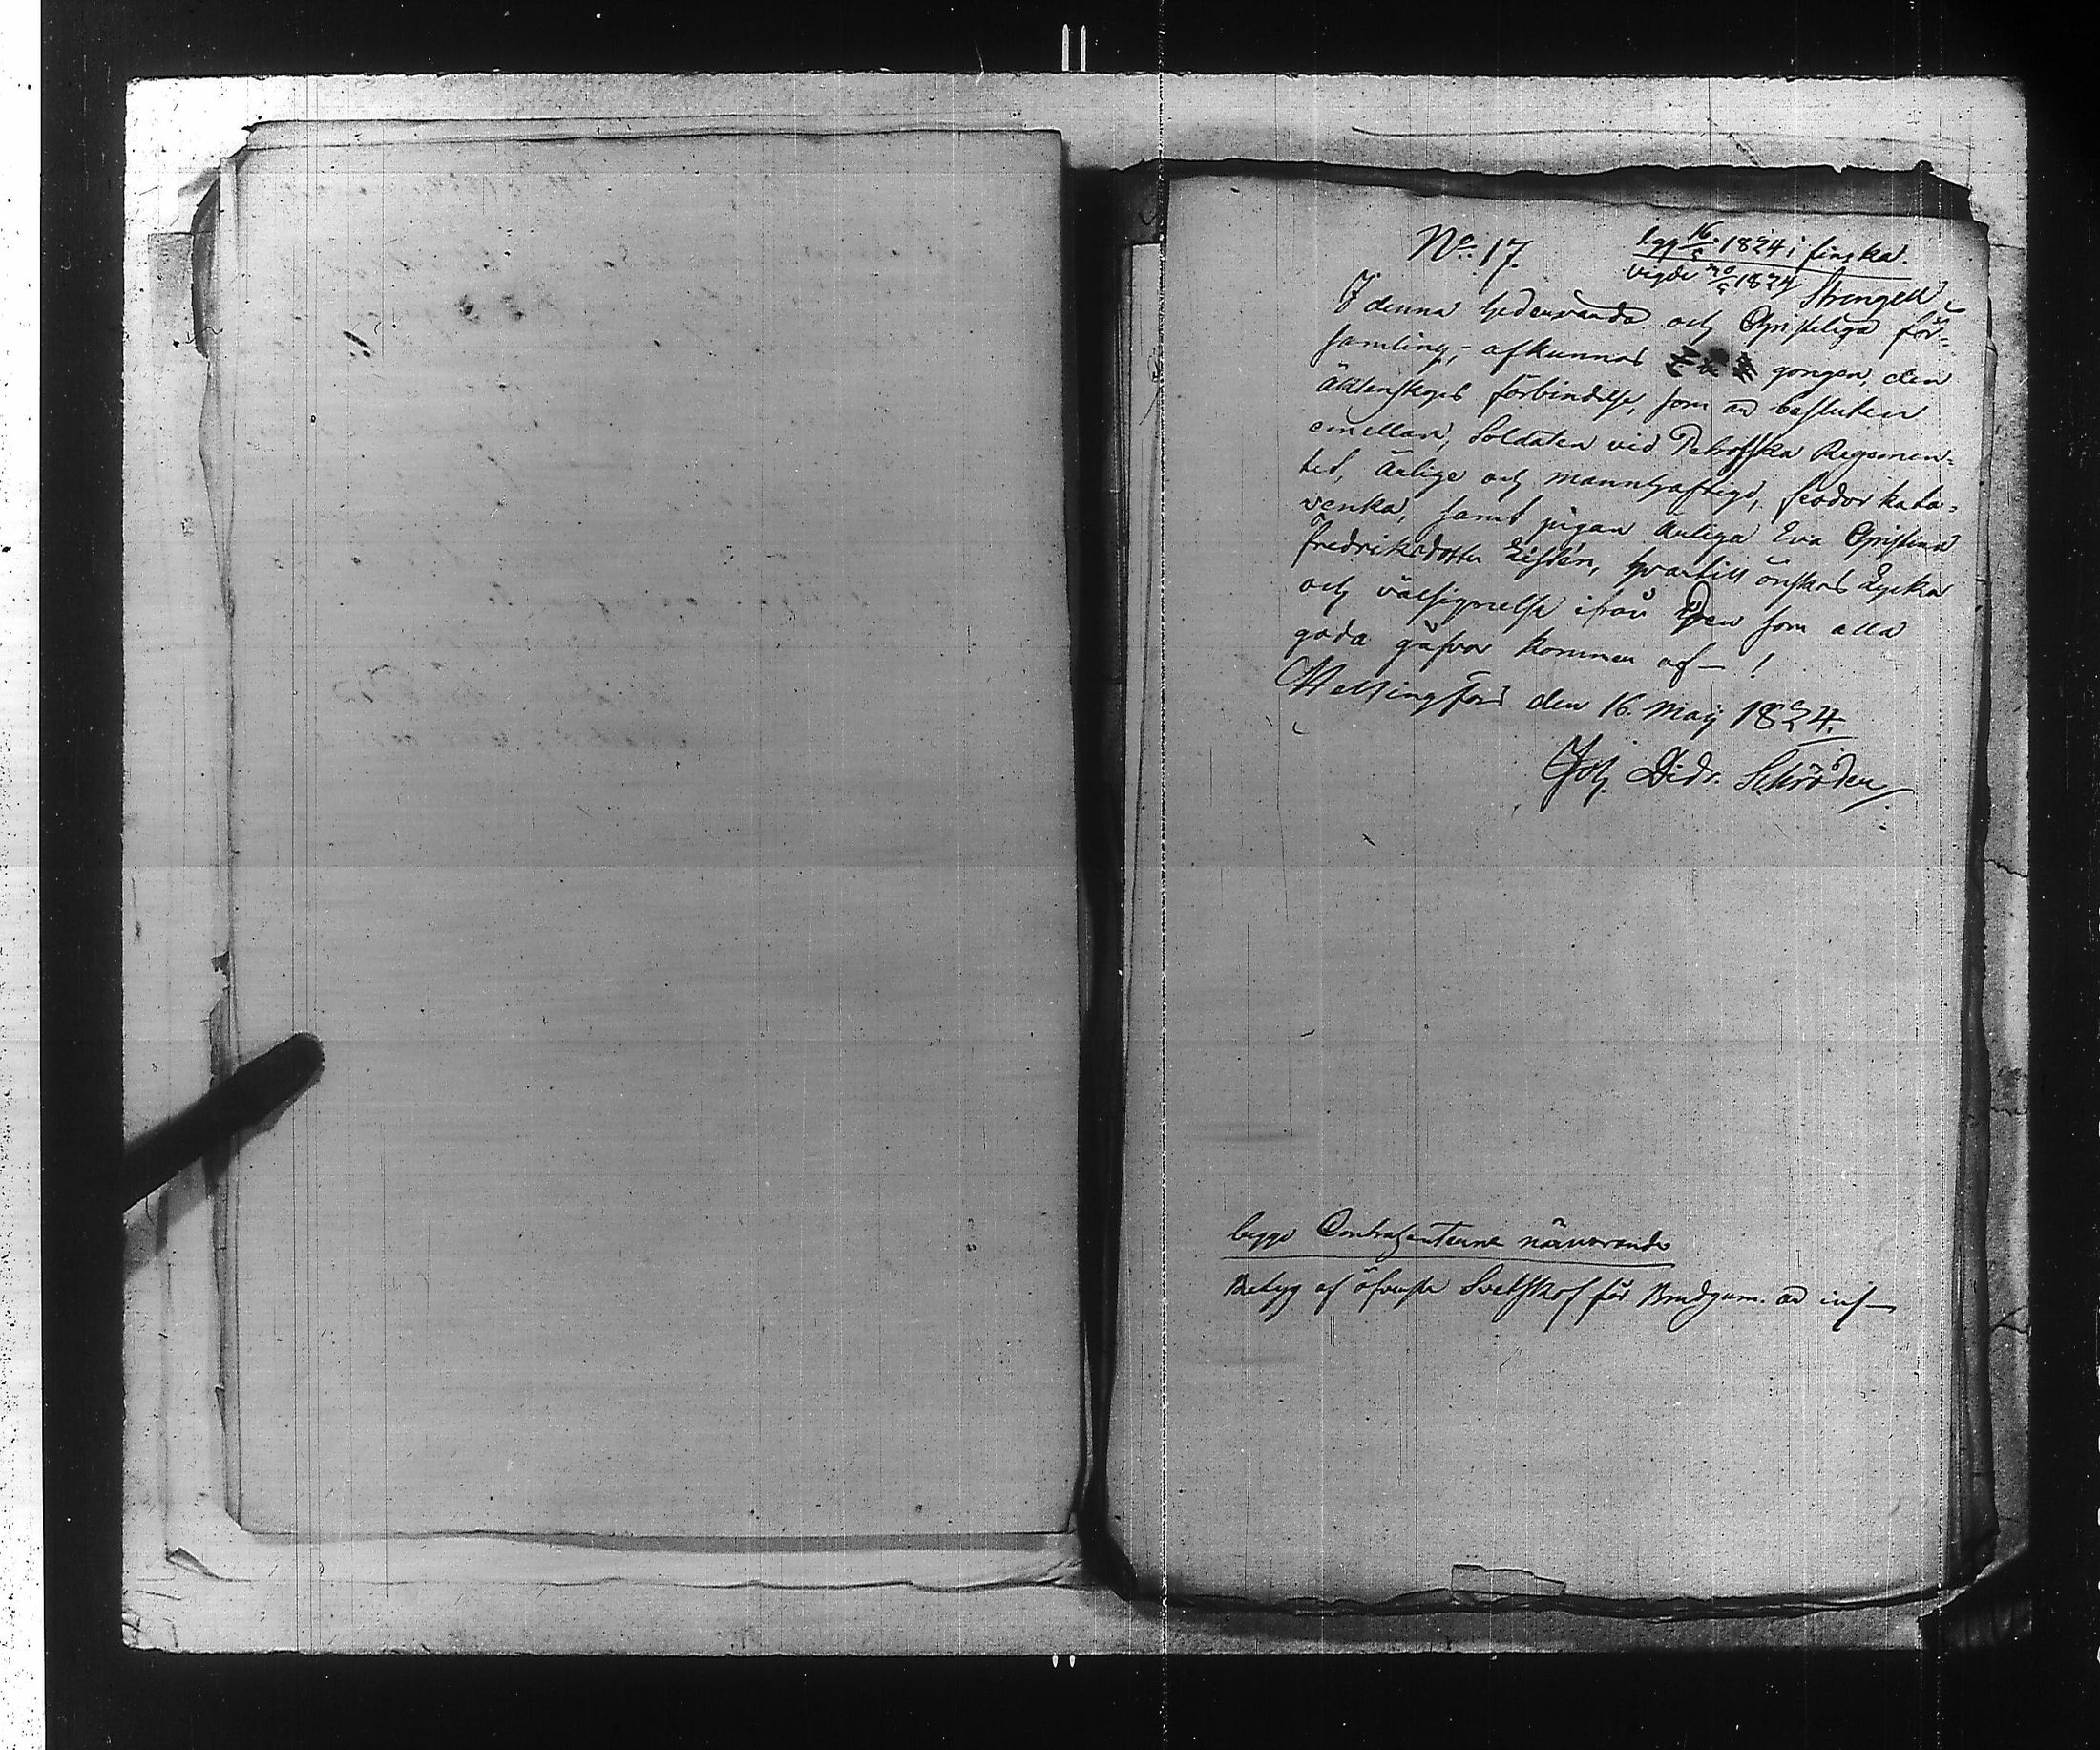 No 17.
lyst 16/5 1824 i finska.
vigde 20/5 1824 Strengell
I denna hedervärda och Christeliga för=
samling, afkunnas gongen, den
äktenskaps förbindelse, som är besluten
emellan, Soldaten vid Petroffska Regemen=
tet, ärlige och manhaftige, feodor kata=
venka, samt pigan ärliga Eva Christina
fredriksdotter Listén, hvartill önskas Lycka
och välsignelse ifrån Den som alla
goda gåfvor kommer af— !
Helsingfors den 16. Maij 1824.
Joh. Didr. Schröder
begge Contrahenterne närvarande
Betyg af öfverste for Brudgum. är inf—